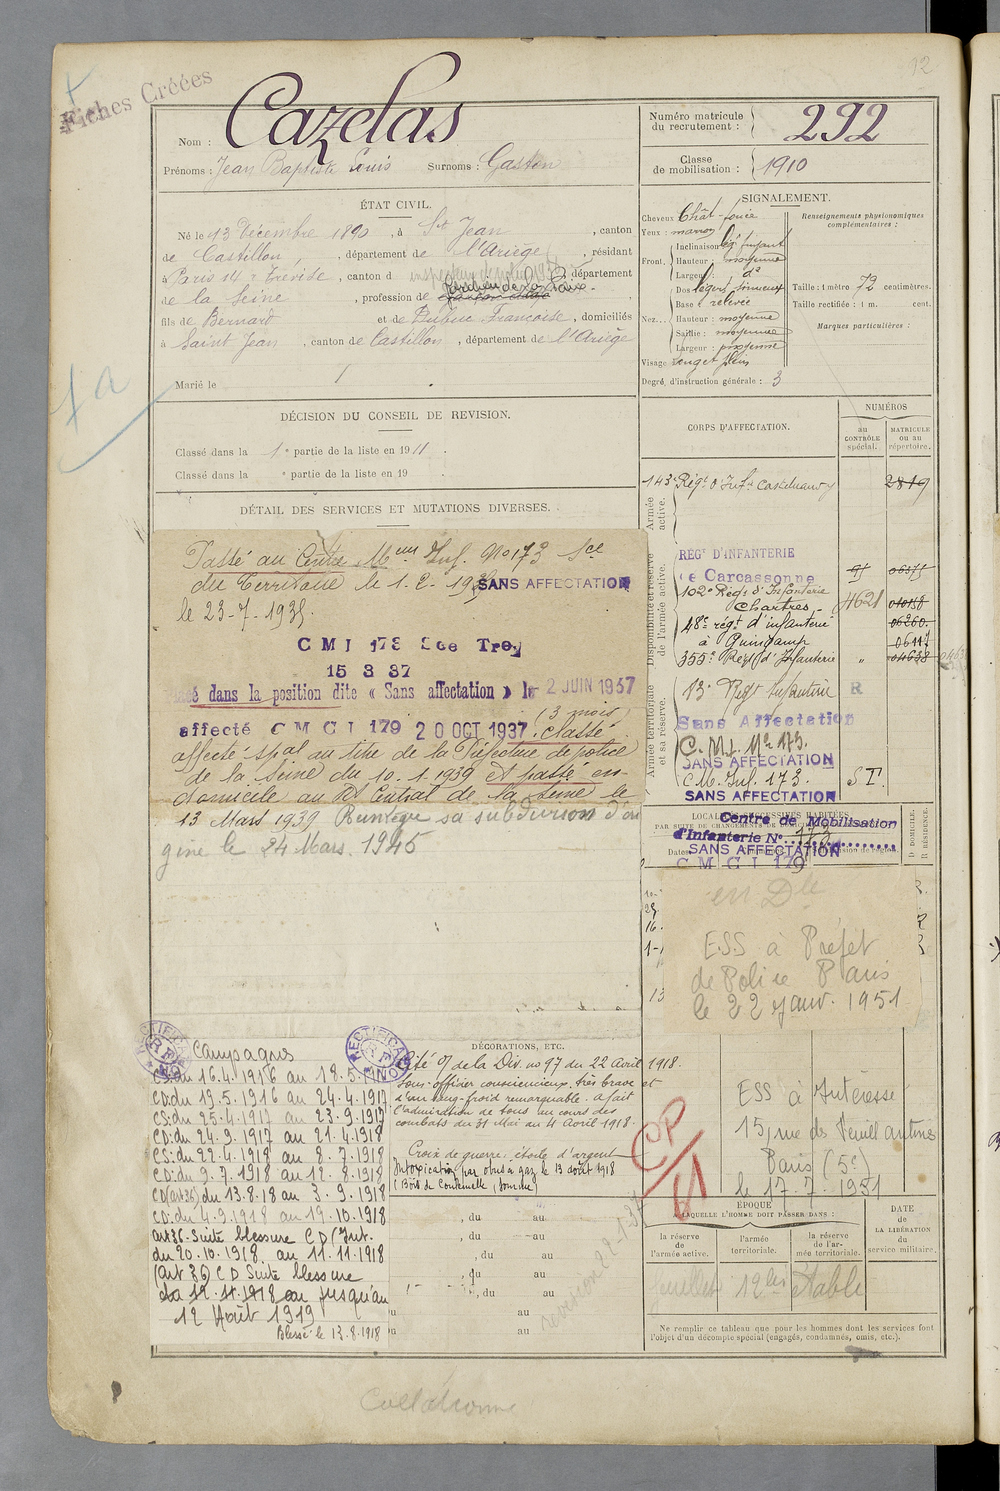 Fiches Créées
12
Nom : Cazelas
Prénoms : Jean Baptiste Louis Surnoms : Gaston
Numéro matricule
du recrutement : 292
Classe
de mobilisation : 1910
ÉTAT CIVIL.
Né le 13 Décembre 1890, à St Jean, canton
de Castillon, département de l'Ariège, résidant
à Paris 14 r Trévise, canton d , département
de la Seine, profession de gardien de la Paix
fils de Bernard et de Dufuc Francoise, domiciliés
à Saint Jean, canton de Castillon, département de l'Ariège
Marié le
SIGNALEMENT.
Cheveux Chât-foncé
Yeux : marron
Front. Inclinaison :
Hauteur : moyenne
Largeur : do
Nez... Dos légers sinueux
Base : relevée
Hauteur : moyenne
Saillie : moyenne
Largeur : moyenne
Visage
Degré d'instruction générale : 3
Renseignements physionomiques
complémentaires :
Taille : 1 mètre 72 centimètres.
Taille rectifiée : 1 m. cent.
Marques particulières :
1a
DÉCISION DU CONSEIL DE REVISION.
Classé dans la 1e partie de la liste en 1911.
Classé dans la e partie de la liste en 19
DÉTAIL DES SERVICES ET MUTATIONS DIVERSES.
Passé au Centre Mon Inf. No 173 Son
du Territoire le 1-2-19 SANS AFFECTATION
le 23-7-1935.
C M I 173 Sce Trey
15 3 37
dans la position dite « Sans affectation » le 2 JUIN 1937
affecté C M C I 179 20 OCT 1937. Classé (3 mois)
affecté spal au titre de la Préfecture de police
de la Seine du 10.1.1939 et passé en
domicile au Rt Central de la Seine le
13 Mars 1939 Réintègre sa subdivision d'ori
gine le 24 Mars. 1945
CORPS D'AFFECTATION.
NUMÉROS
au
CONTRÔLE
spécial.
MATRICULE
ou au
répertoire.
Armée
active.
143e Régt d'Inf. Castelnaudary 2819
Disponibilité et réserve
de l'armée active.
REGt D'INFANTERIE
de Carcassonne
102e Régt d'Infanterie
Chartres. 4621
48e régt d'infanterie 06260.
à Guingamp 06117
355e Régt d'Infanterie " 04638
Armée territoriale
et sa réserve.
13e Régt Infanterie R
Sans Affectation
C. M. I. No 173.
SANS AFFECTATION
C M. Inf. 173. S T.
SANS AFFECTATION
LOCALITÉS SUCCESSIVES HABITÉES
PAR SUITE DE CHANGEMENTS DE
Centre de Mobilisation
d'Infanterie No 173
SANS AFFECTATION
C M C I 179
D DOMICILE.
R RÉSIDENCE.
en Dle
ESS à Préfet
de Police Paris
le 22 Janv. 1951
ESS à Intéressé
15, rue des Feuillantines
Paris (5e)
le 17.7.1951
CP/61
RECTIFICATION
RF
RECTIFICATION
RF
Campagnes
CS: du 16.4.1916 au 18.5.1916
CD: du 19.5.1916 au 24.4.1917
CS: du 25.4.1917 au 23.9.1917
CD: du 24.9.1917 au 21.4.1918
CS: du 22.4.1918 au 8.7.1918
CD: du 9.7.1918 au 12.8.1918
CD (art 36) du 13.8.18 au 3.9.1918
CD: du 4.9.1918 au 19.10.1918
art 36. Suite blessure C D (Int.
du 20.10.1918 au 11.11.1918
(Art 36) C D Suite blessure
du 12.11.1918 au jusqu'au
12 Août 1919
Blessé le 13.8.1918
DÉCORATIONS, ETC.
Cité O/ de la Div. no 97 du 22 Avril 1918.
Sous-officier consciencieux, très brave et
d'un sang-froid remarquable. a fait
l'admiration de tous au cours des
combats du 31 Mai au 4 Avril 1918.
Croix de guerre, étoile d'argent
Intoxication par obus à gaz le 13 août 1918
(Bois de (Somme)
, du au
, du au
, du au
, du au
, du au
au
au
revision 22-1-37
ÉPOQUE
À LAQUELLE L'HOMME DOIT PASSER DANS :
la réserve
de l'armée active.
l'armée
territoriale.
la réserve
de l'ar-
mée territoriale.
DATE
de
LA LIBÉRATION
du
service militaire.
feuillet 12 bis établi
Ne remplir ce tableau que pour les hommes dont les services font
l'objet d'un décompte spécial (engagés, condamnés, omis, etc.).